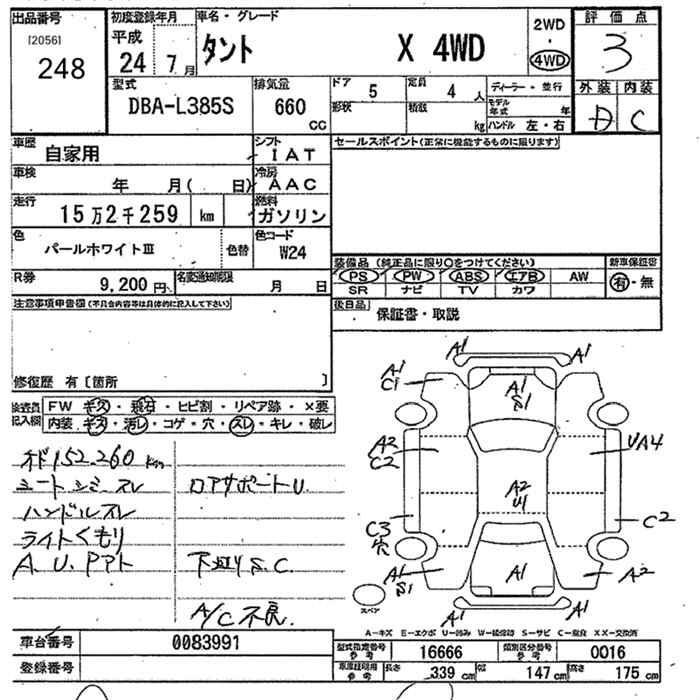 出品番号
[2056]
248
初度登録年月
平成
24 7月
車名・グレード
タント X 4WD
2WD
・
4WD
評価点
3
外装 内装
D C
型式
DBA-L385S
排気量
660
CC
ドア 5
定員 4 人
ディーラー・並行
形状
積載
kg
モデル年式 年
ハンドル 左・右
車歴
自家用
シフト
IAT
セールスポイント(正常に機能するものに限ります)
車検
年 月( 日)
冷房
AAC
走行
15万2千259 km
燃料
ガソリン
色
パールホワイトⅢ
色替
色コード
W24
装備品 (純正品に限り○をつけてください)
新車保証書
PS PW ABS エアB AW
SR ナビ TV カワ
有・無
R券
9,200円
名変通知期限
月 日
後日品
保証書・取説
注意事項申告欄(不具合内容等は具体的に記入して下さい)
修復歴 有〔箇所 〕
検査員
記入欄
FW キズ・飛石・ヒビ割・リペア跡・×要
内装 キズ・汚レ・コゲ・穴・スレ・キレ・破レ
オド152,260km
シートシミ・スレ
ロアサポートU
ハンドルスレ
ライトくもり
A.U.P
下廻りS.C
A/C不良
A1 A1
A1
C1
A1
S1
A2
C2
UA4
A2
U1
C3
穴
C2
A1
S1
A1
A2
A1 A1
スペア
A-キズ E-エクボ U-凹み W-補修跡 S-サビ C-腐食 XX-交換済
車台番号
0083991
登録番号
型式指定番号
参考
16666
類別区分番号
参考
0016
車庫証明用
参考
長さ 339 cm 幅 147 cm 高さ 175 cm